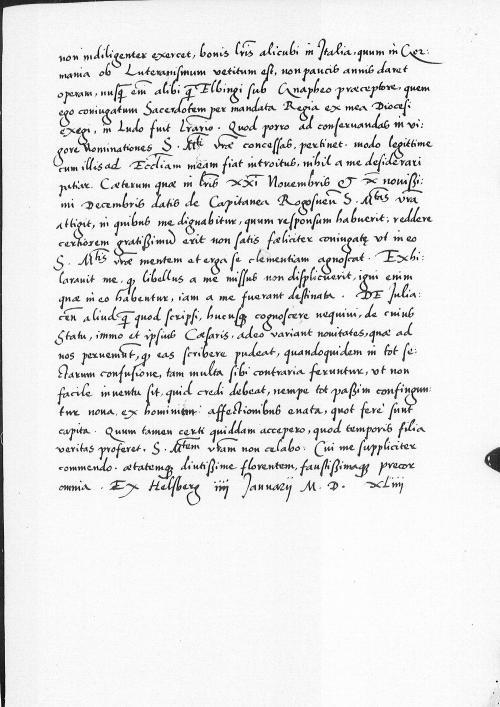 non indiligenter exercet, bonis lris alicubi in Italia, quum in Ger:
mania ob Luteranismum vetitum est, non paucis annis daret
operam, nusq̃ em̃ alibi q̃ Elbingi sub Gnapheo præceptore, quem
ego coniugatum Sacerdotem per mandata Regia ex mea Diocesi
exegi, in Ludo fuit lrario. Quod porro ad conservandas in vi:
gore nominationes S. Mti vræ concessas, pertinet. modo legittime
cum illis ad Eccliam meam fiat introitus, nihil a me desiderari
patiar. Cæterum quæ in lris XXI Novembris et X novissi:
mi Decembris datis de Capitanea Rogosnen S. Mtis vra
attigit, in quibus me dignabitur, quum responsum habuerit, reddere
certiorem gratissimũ erit non satis fæliciter coniugatę vt in eo
S. Mtis vræ mentem et erga se clementiam agnoscat. Exhi:
laravit me, q libellus a me missus non displicuerit, igni enim
quæ in eo habentur, iam a me fuerant destinata. DE Iulia:
cen aliud q̃ quod scripsi, hucusq cognoscere nequivi, de cuius
Statu, immo et ipsius Cæsaris, adeo variant novitates, quæ ad
nos perveniunt, q eas scribere pudeat, quandoquidem in tot se:
ctarum confusione, tam multa sibi contraria feruntur, vt non
facile inventu sit, quid credi debeat, nempe tot passim confingun:
tur nova, ex hominum affectionibus enata, quot fere sunt
capita. Quum tamen certi quiddam accepero, quod temporis filia
veritas proferet, S. Mtem vram non celabo. Cui me suppliciter
commendo. ætatemq diutissime florentem, faustissimaq precor
omnia. EX Helsberg iiii Ianuarij M. D. XLiiii